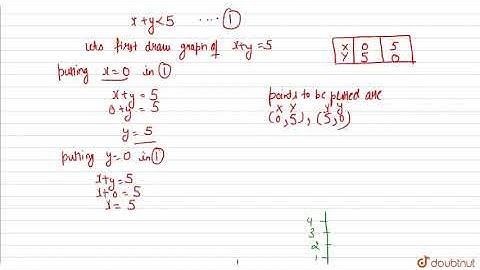 x+y<5 ---- ①
lets first draw graph of x+y=5
putting x=0 in ①
x+y=5
0+y=5
y=5
putting y=0 in ①
x+y=5
x+0=5
x=5
x 0 5
y 5 0
points to be plotted are
x y x y
(0,5), (5,0)
4
3
2
1
doubtnut